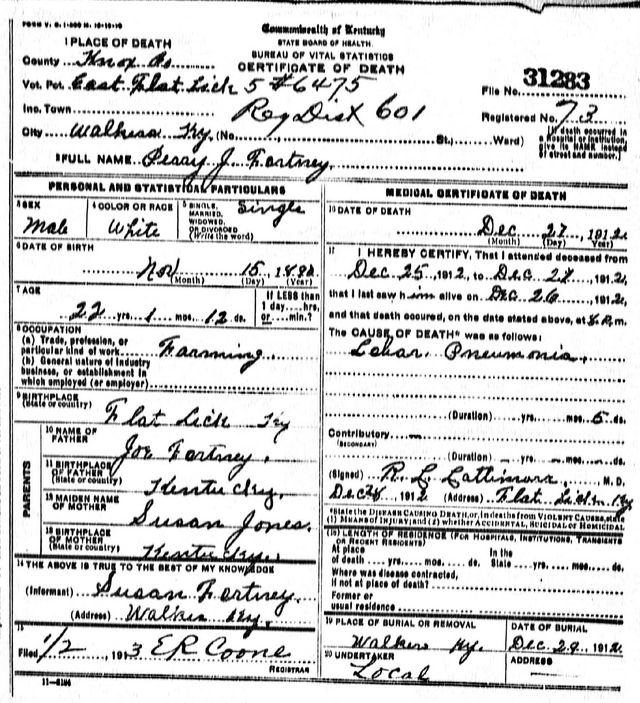 FORM V. S. 1-
Commonwealth of Kentucky
STATE BOARD OF HEALTH.
BUREAU OF VITAL STATISTICS
CERTIFICATE OF DEATH
1 PLACE OF DEATH
County Knox Co
Vot. Pct. East Flat Lick 5 #6475
File No. 31283
Inc. Town
Reg Dist 601
Registered No. 73
City Walker Ky. (No. St.; Ward)
(If death occurred in a Hospital or Institution, give its NAME instead of street and number.)
2 FULL NAME Perry J. Fortney
PERSONAL AND STATISTICAL PARTICULARS
3 SEX
Male
4 COLOR OR RACE
White
5 SINGLE, MARRIED, WIDOWED, OR DIVORCED (Write the word)
Single
6 DATE OF BIRTH
Nov 15, 1890
(Month) (Day) (Year)
7 AGE
22 yrs. 1 mos. 12 ds.
If LESS than 1 day....hrs. or....min.?
8 OCCUPATION
(a) Trade, profession, or particular kind of work Farming
(b) General nature of industry business, or establishment in which employed (or employer)
9 BIRTHPLACE (State or country)
Flat Lick Ky
PARENTS
10 NAME OF FATHER
Joe Fortney.
11 BIRTHPLACE OF FATHER (State or country)
Kentucky.
12 MAIDEN NAME OF MOTHER
Susan Jones.
13 BIRTHPLACE OF MOTHER (State or country)
Kentucky.
14 THE ABOVE IS TRUE TO THE BEST OF MY KNOWLEDGE
(Informant) Susan Fortney.
(Address) Walker Ky.
15
Filed 1/2 1913 E R Coone
REGISTRAR
MEDICAL CERTIFICATE OF DEATH
16 DATE OF DEATH
Dec 27, 1912
(Month) (Day) (Year)
17 I HEREBY CERTIFY, That I attended deceased from
Dec 25, 1912, to Dec 27, 1912,
that I last saw him alive on Dec 26, 1912,
and that death occured, on the date stated above, at m.
The CAUSE OF DEATH* was as follows:
Lobar Pneumonia.
(Duration) yrs. mos. 5 ds.
Contributory
(SECONDARY)
(Duration) yrs. mos. ds.
(Signed) R. L. Lattimore, M. D.
Dec 28, 1912 (Address) Flat Lick Ky
*State the DISEASE CAUSING DEATH, or, in deaths from VIOLENT CAUSES, state (1) MEANS OF INJURY; and (2) whether ACCIDENTAL, SUICIDAL or HOMICIDAL
18 LENGTH OF RESIDENCE (FOR HOSPITALS, INSTITUTIONS, TRANSIENTS OR RECENT RESIDENTS)
At place of death yrs. mos. ds. In the State yrs. mos. ds.
Where was disease contracted, if not at place of death?
Former or usual residence
19 PLACE OF BURIAL OR REMOVAL
Walker Ky.
DATE OF BURIAL
Dec. 29, 1912
20 UNDERTAKER
Local
ADDRESS